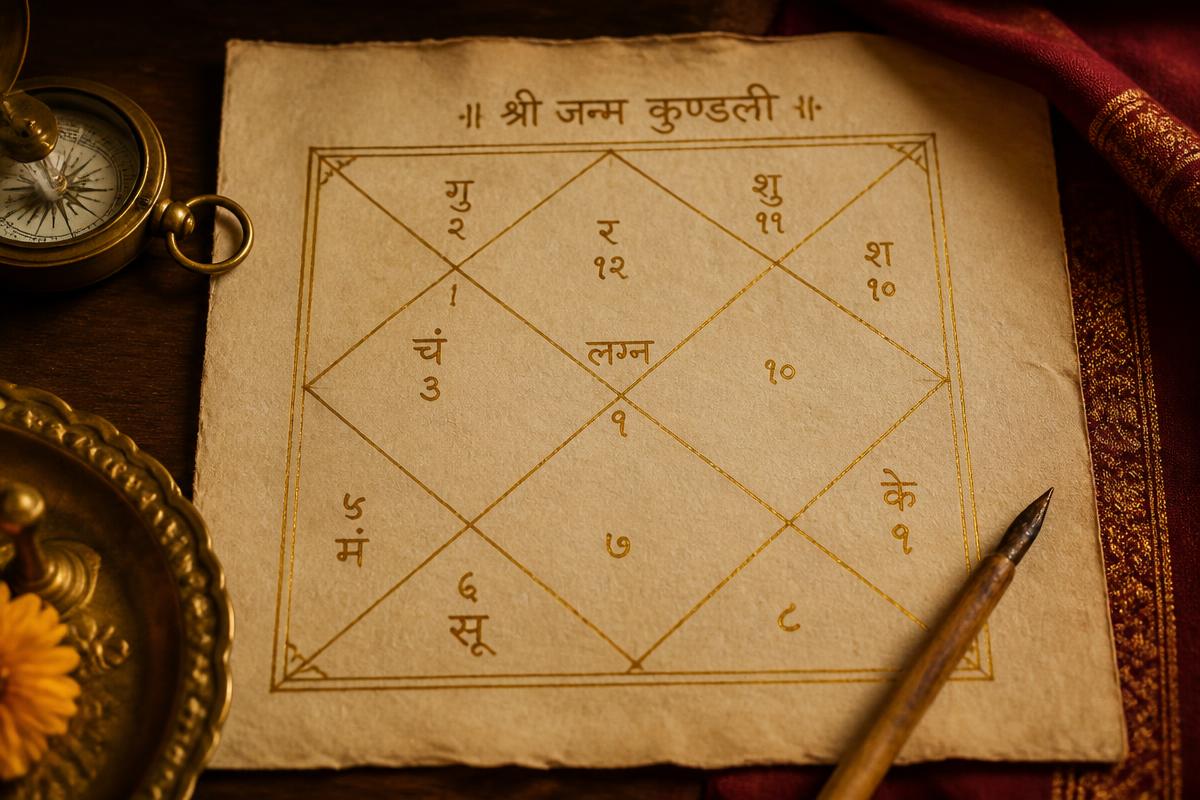 ॥ श्री जन्म कुण्डली ॥
गु
२
र
१२
शु
११
श
१०
।
चं
३
लग्न
१०
१
५
मं
के
१
७
६
सू
८